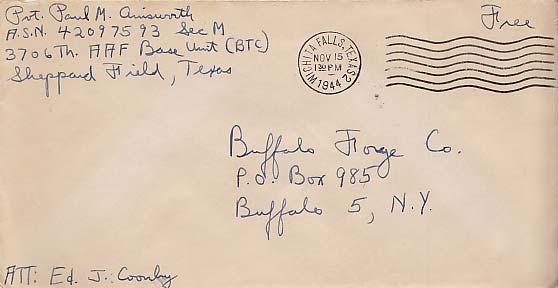 Pvt. Paul M. Ainsworth
A.S.N. 42097593 Sec M
3706Th. AAF Base Unit (BTC)
Sheppard Field, Texas
Free
WICHITA FALLS, TEXAS 2
NOV 15
1944
Buffalo Forge Co.
P.O. Box 985
Buffalo 5, N.Y.
ATT: Ed. J.